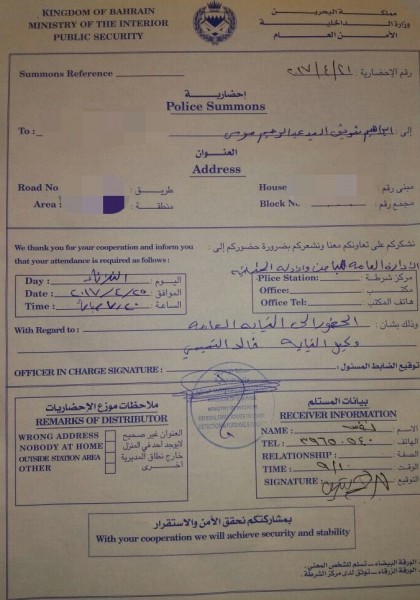 KINGDOM OF BAHRAIN
MINISTRY OF THE INTERIOR
PUBLIC SECURITY
مملكة البحرين
وزارة الداخلية
الأمن العام
Summons Reference
رقم الإحضارية : ٢٠١٧/٤/٢١
إحضارية
Police Summons
To :
إلى :
العنوان
Address
Road No
طريق :
House
مبنى رقم :
Area :
منطقة :
Block No
مجمع رقم :
We thank you for your cooperation and inform you
that your attendance is required as follows :
نشكركم على تعاونكم معنا ونشعركم بضرورة حضوركم إلى :
الإدارة العامة للمباحث والأدلة الجنائية
Day :
الثلاثاء
اليوم :
Plice Station:
مركز شرطة :
Date :
٢٠١٧/٤/٢٥
الموافق :
Office:
مكتب :
Time :
الساعة :
Office Tel:
هاتف المكتب :
With Regard to :
الحضور إلى النيابة العامة
وذلك بشأن :
وكيل النيابة خالد التميمي
OFFICER IN CHARGE SIGNATURE :
توقيع الضابط المسئول :
ملاحظات موزع الإحضاريات
REMARKS OF DISTRIBUTOR
WRONG ADDRESS
العنوان غير صحيح
NOBODY AT HOME
لايوجد أحد في المنزل
OUTSIDE STATION AREA
خارج نطاق المديرية
OTHER
أخرى
بيانات المستلم
RECEIVER INFORMATION
NAME :
نفسه
الاسم :
TEL :
الهاتف :
RELATIONSHIP :
الصفة :
TIME :
٩/١٠
الوقت :
SIGNATURE :
التوقيع :
بمشاركتكم نحقق الأمن والاستقرار
With your cooperation we will achieve security and stability
الورقة البيضاء - تسلم للشخص المعني .
الورقة الزرقاء - توثق لدى مركز الشرطة .